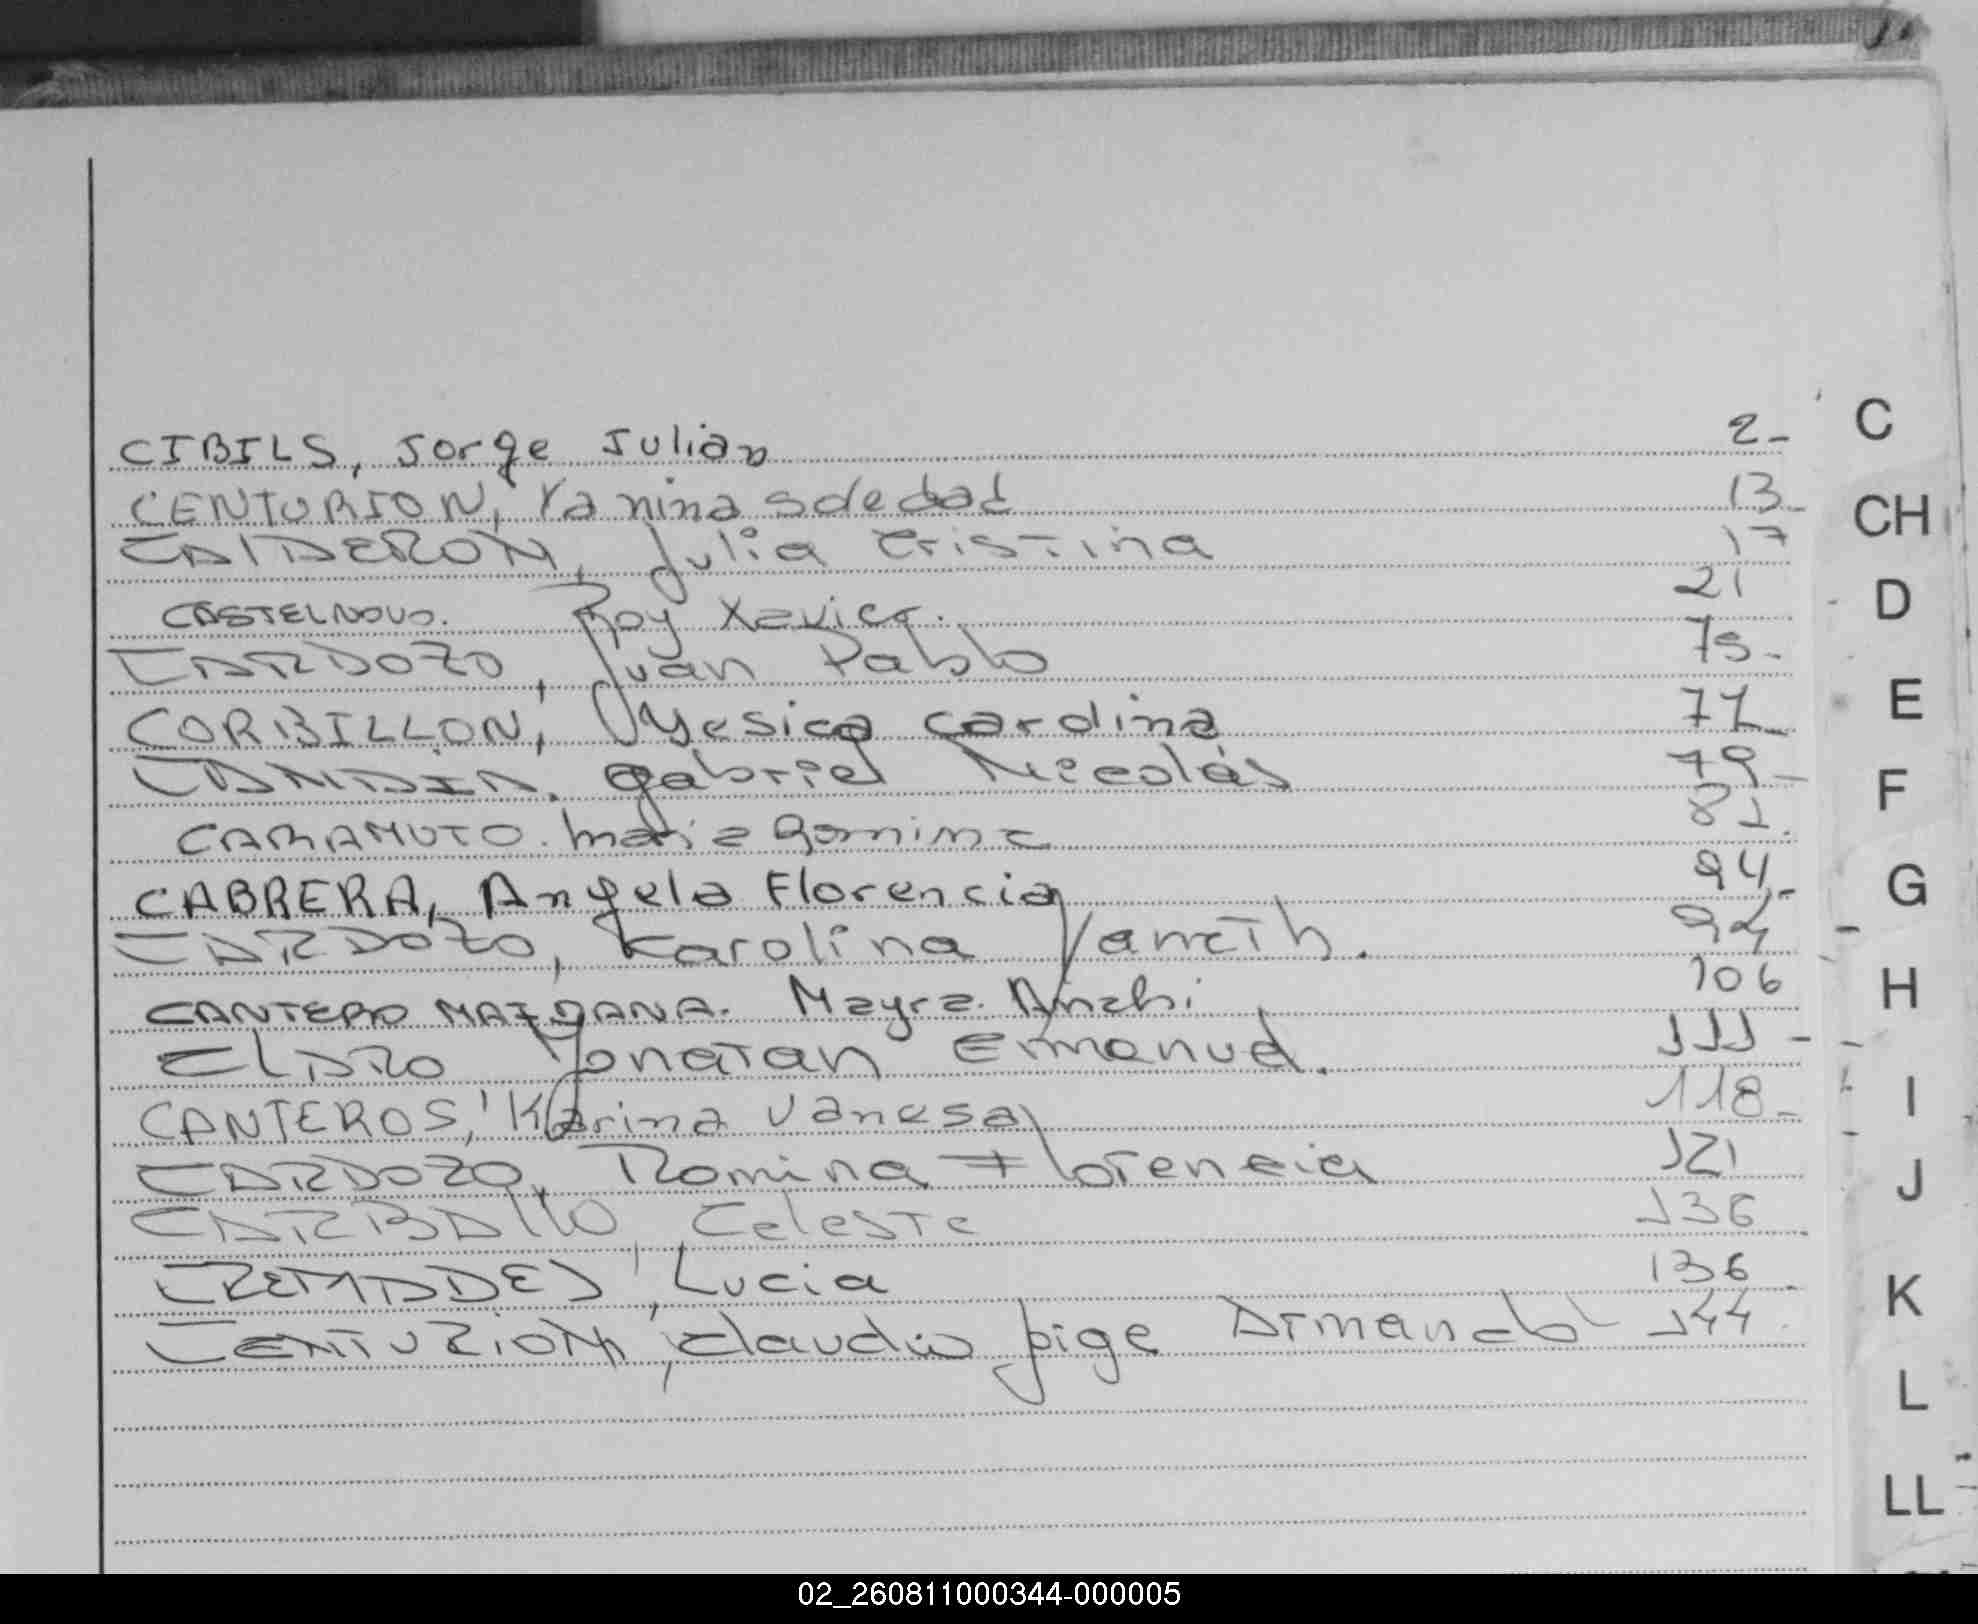 CIBILS, Jorge Julian 2-
C
CENTURION, Yanina Soledad 13-
CH
CALDERON, Julia Cristina 17
CASTELNOVO. Roy Xavier. 21
D
CARDOZO, Juan Pablo 75-
CORBILLON, Yesica Carolina 77-
E
CANDIA. Gabriel Nicolás 79-
F
CARAMUTO. Maria Romina 81.
CABRERA, Angela Florencia 94-
G
CARDOZO, Karolina Yaneth. 94
CANTERO MAIDANA. Mayra Anahi 106
H
CLARO Jonatan Emanuel. 111-
CANTEROS, Karina Vanesa 118-
I
CARDOZO, Romina Florencia 121
J
CARBALLO, Celeste 136
CREMADES, Lucia 136
K
CENTURION, Claudio Armando 144
L
LL
02_260811000344-000005